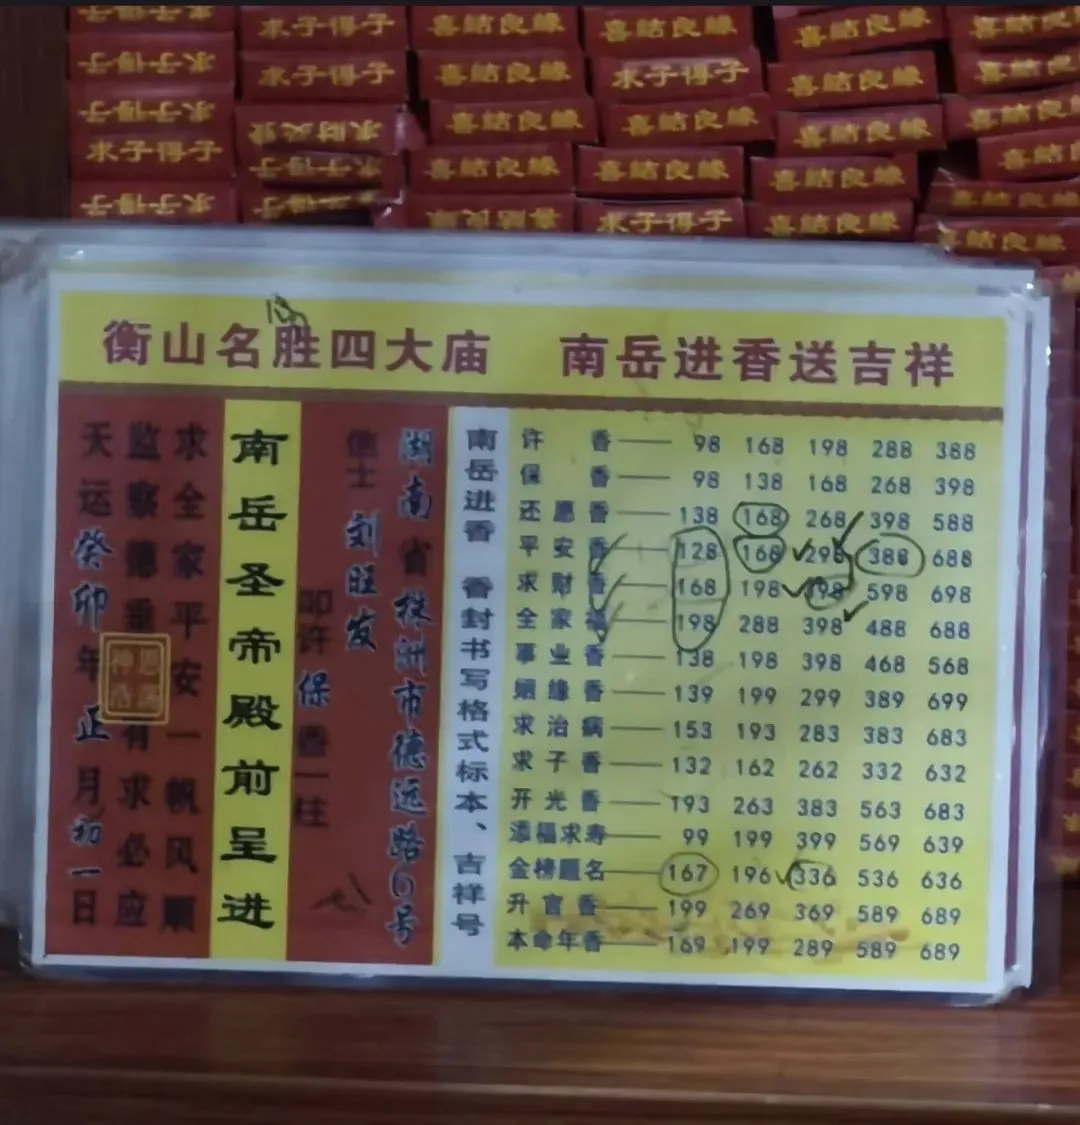 求子得子
喜結良緣
喜結良緣
喜結良緣
喜結良緣
求子得子
求子得子
喜結良緣
求子得子
喜結良緣
喜結良緣
求子得子
求財
喜結良緣
喜結良緣
喜結良緣
喜結良緣
求子得子
喜結良緣
喜結良緣
喜結良緣
求子得子
求子得子
喜結良緣
喜結良緣
衡山名胜四大庙 南岳进香送吉祥
求全家平安一帆风顺
监察德垂 有求必应
天运癸卯年正月初一日
南岳圣帝殿前呈进
湖南省株洲市德远路6号
信士 刘旺发
叩许保香一柱
南岳进香 香封书写格式标本、吉祥号
许香—— 98 168 198 288 388
保香—— 98 138 168 268 398
还愿香—— 138 168 268 398 588
平安香—— 128 168 298 388 688
求财香—— 168 198 398 598 698
全家福—— 198 288 398 488 688
事业香—— 138 198 398 468 568
姻缘香—— 139 199 299 389 699
求治病—— 153 193 283 383 683
求子香—— 132 162 262 332 632
开光香—— 193 263 383 563 683
添福求寿—— 99 199 399 569 639
金榜题名—— 167 196 336 536 636
升官香—— 199 269 369 589 689
本命年香—— 169 199 289 589 689